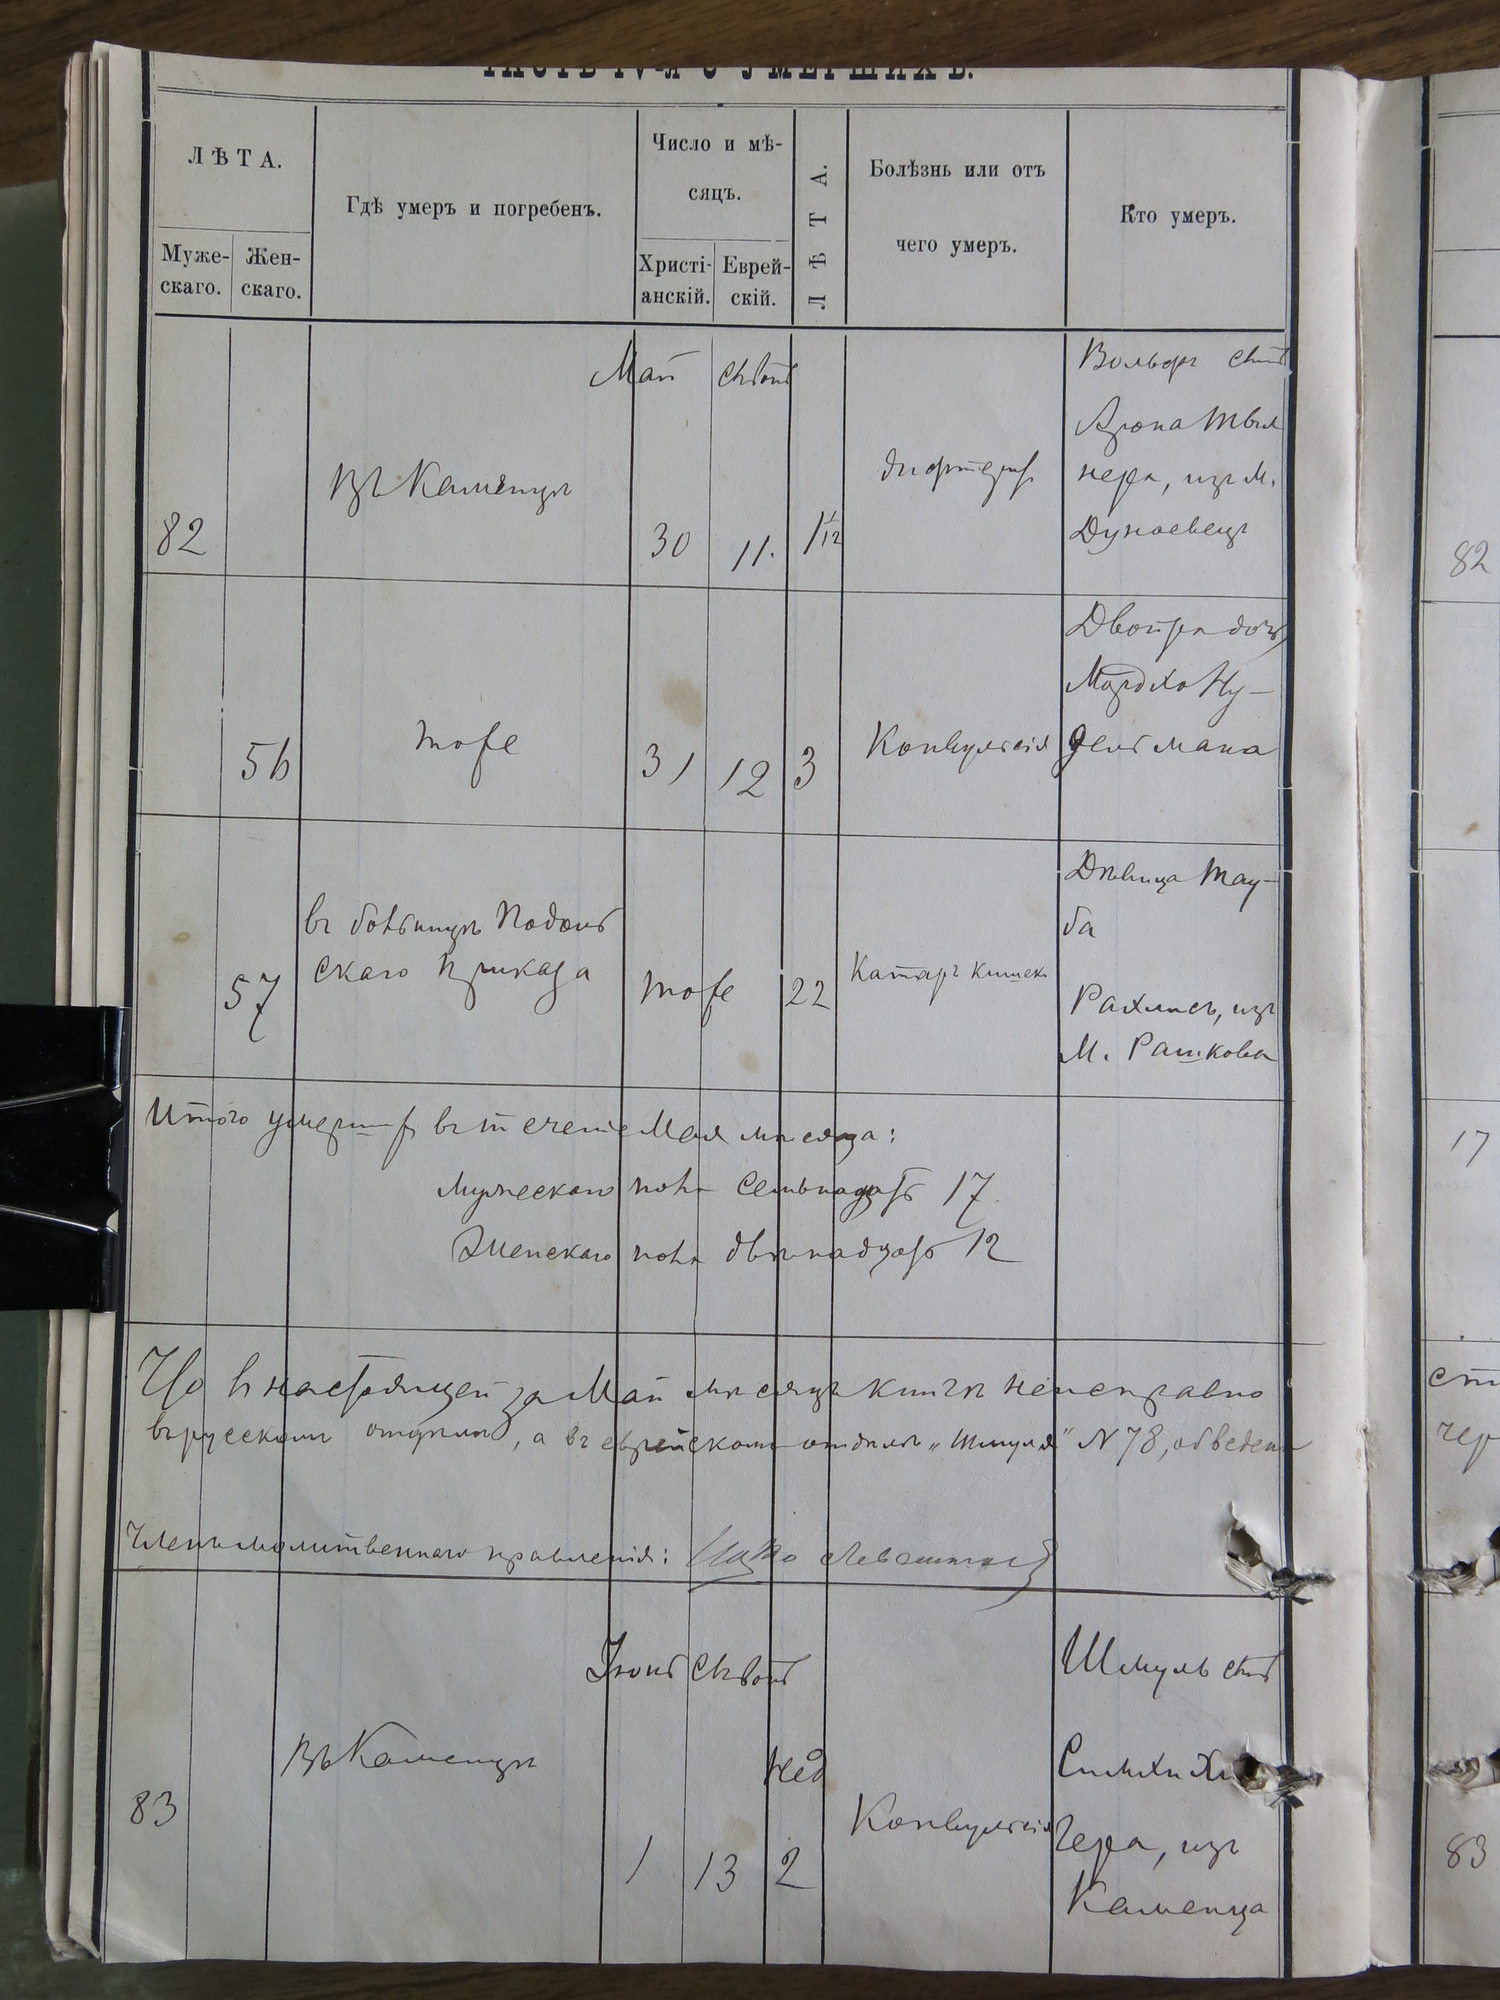 ЧАСТЬ IV-я О УМЕРШИХЪ.
ЛѢТА.
Муже-
скаго.
Жен-
скаго.
Гдѣ умеръ и погребенъ.
Число и мѣ-
сяцъ.
Христі-
анскій.
Еврей-
скій.
ЛѢТА.
Болѣзнь или отъ
чего умеръ.
Кто умеръ.
Май
Въ Каменцѣ
82
30
11.
1 1/12
Вольфъ сынъ
Арона
нера, изъ м.
Дунаевецъ
56
тоже
31
12
3
Конвульсія
Двойра дочь
Мордко Ну-
дельмана
57
въ больницѣ Подоль
скаго Приказа
тоже
22
Катаръ кишекъ
Дѣвица Тау-
ба
Рахлисъ, изъ
м. Рашкова
Итого умерш. въ теченіе Мая мѣсяца:
мужескаго пола семьнадцать 17.
Женскаго пола двѣнадцать 12
Что в настоящей за Май мѣсяцъ книгѣ неисправно
въ русскомъ отдѣлѣ, а въ еврейскомъ отдѣлѣ „Шмуля" N 78, обведено
Членъ молитвеннаго правленія:
Іюнь
83
Въ Каменцѣ
1
13
нед
2
Конвульсія
Шмуль сынъ
Симхи
гера, изъ
Каменца
82
17
83